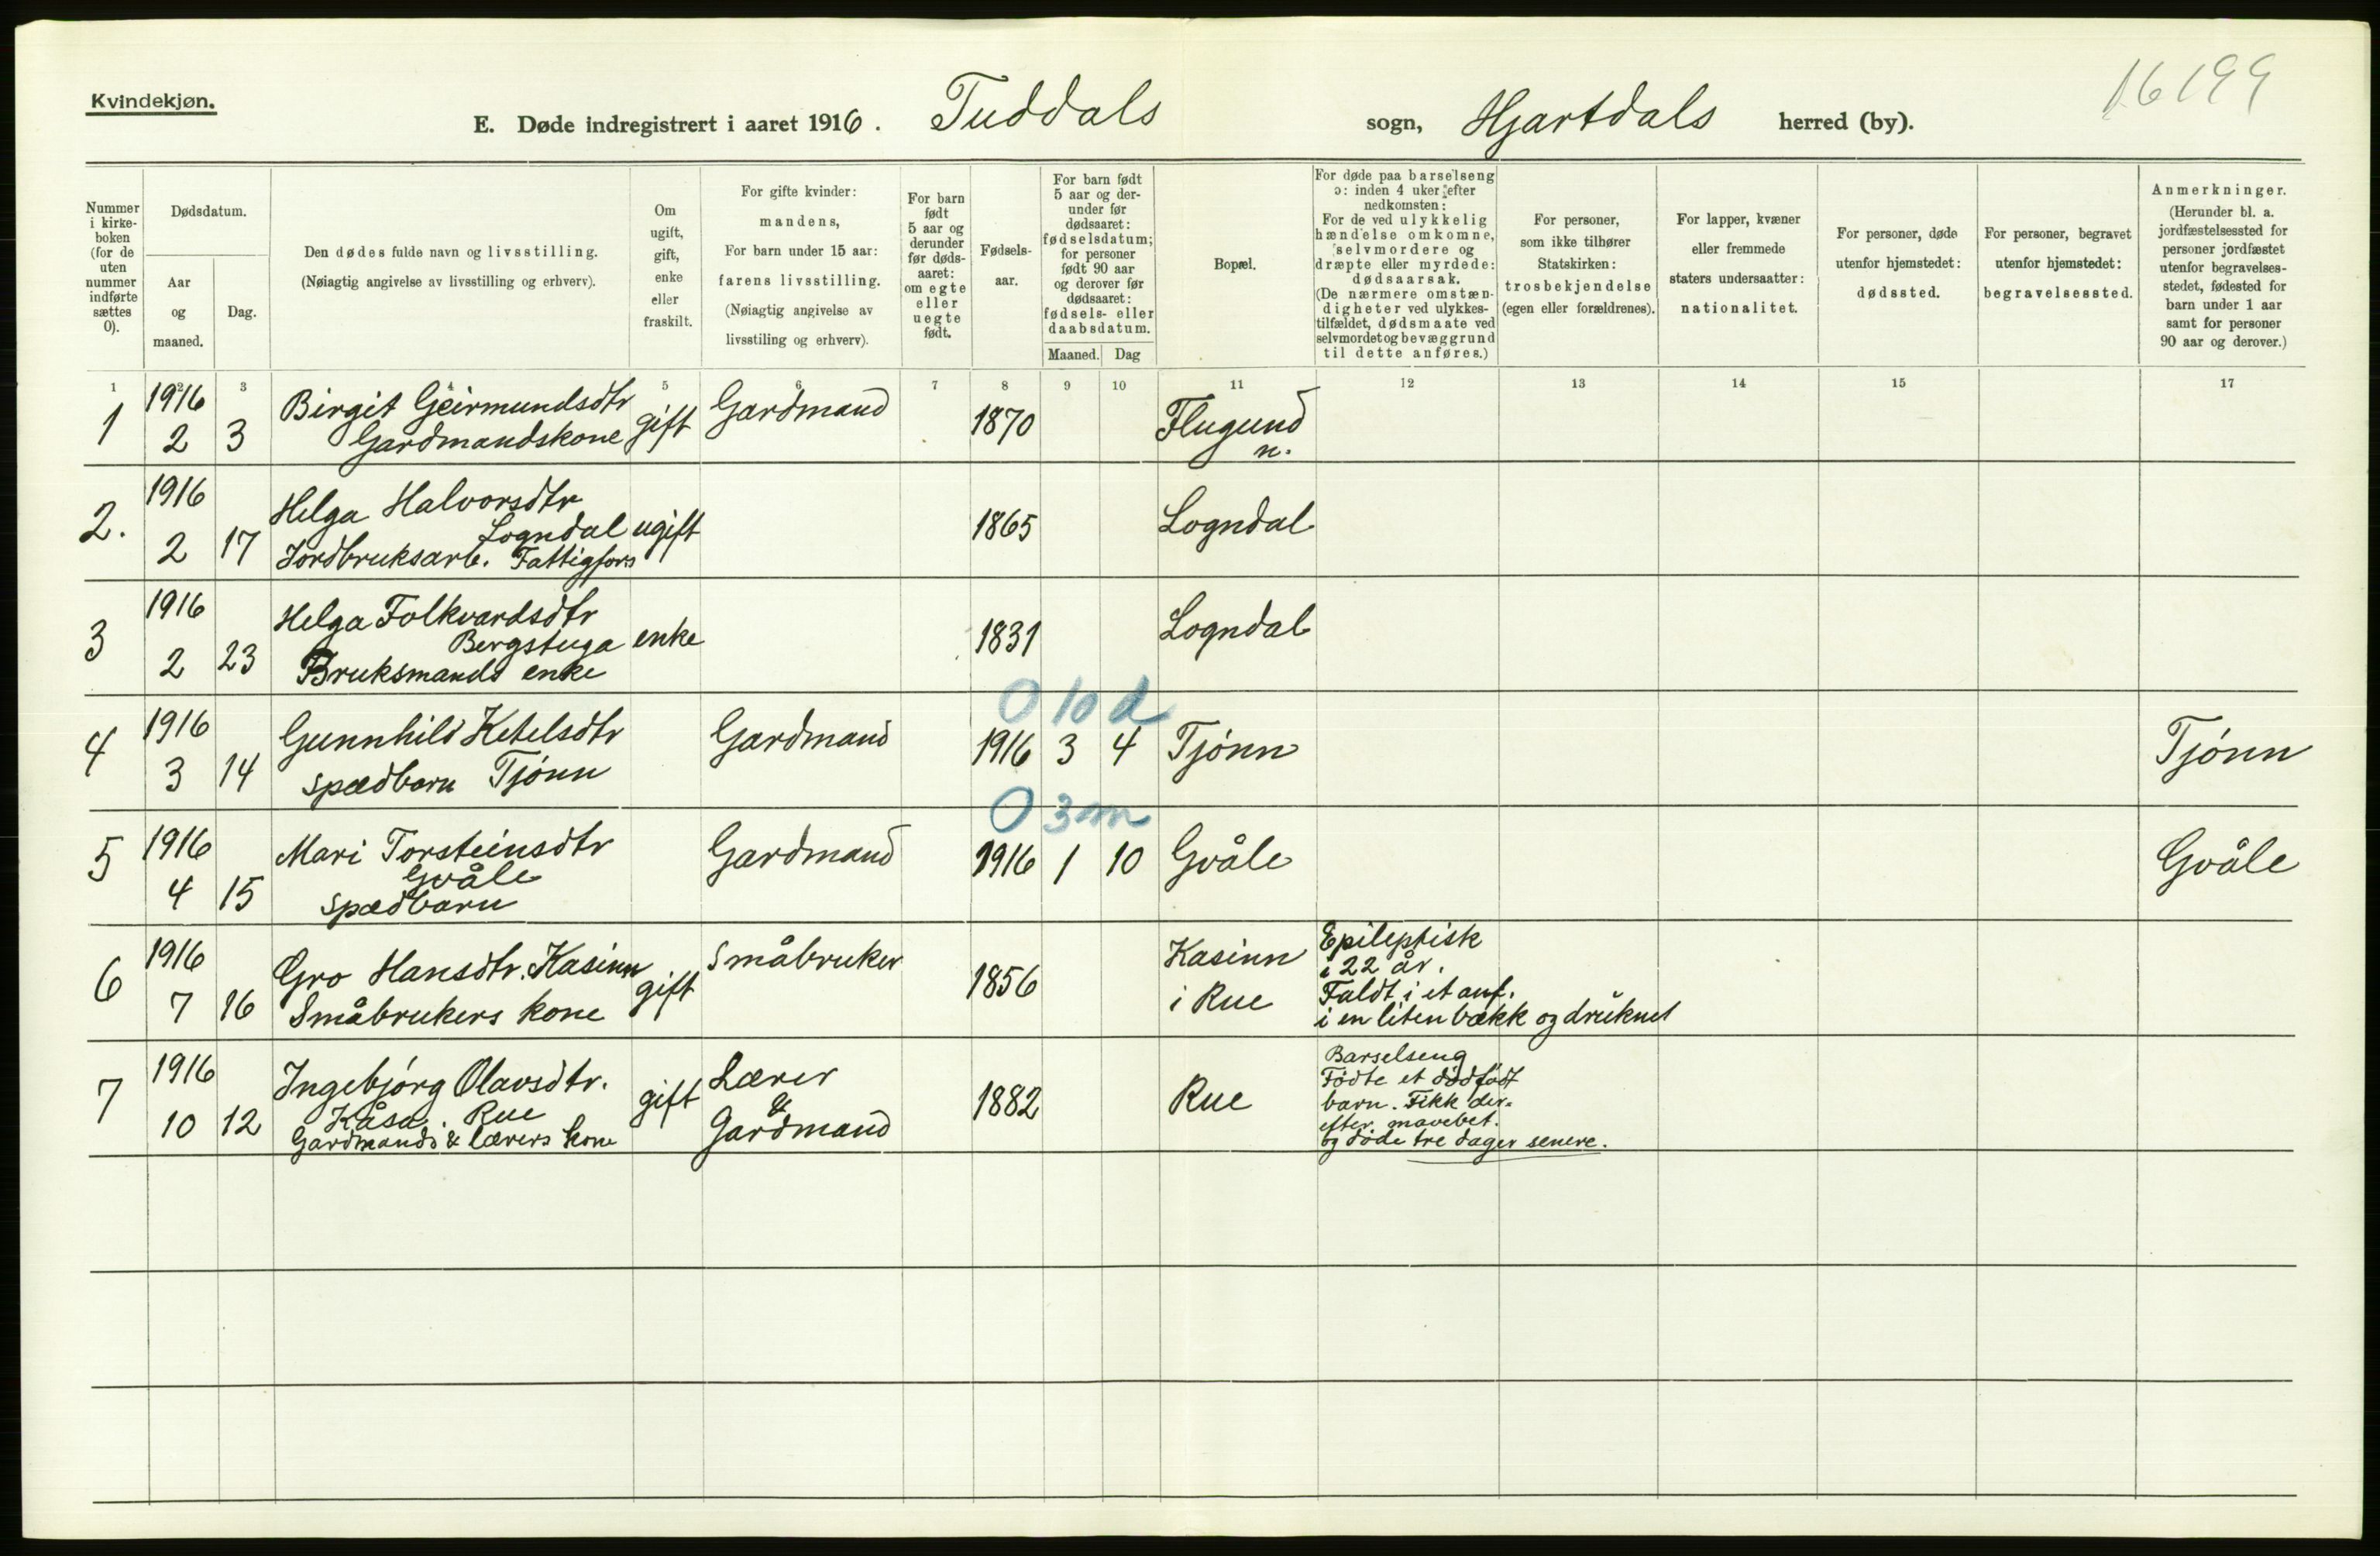 16199
Kvindekjøn.
E. Døde indregistrert i aaret 1916. Tuddals sogn, Hjartdals herred (by).
Nummer i kirke-boken (for de uten nummer indførte sættes 0).
Dødsdatum.
Aar og maaned.
Dag.
Den dødes fulde navn og livsstilling.
(Nøiagtig angivelse av livsstilling og erhverv).
Om ugift, gift, enke eller fraskilt.
For gifte kvinder: mandens,
For barn under 15 aar: farens livsstilling.
(Nøiagtig angivelse av livsstiling og erhverv).
For barn født 5 aar og derunder før døds-aaret: om egte eller uegte født.
Fødsels-aar.
For barn født 5 aar og der-under før dødsaaret: fødselsdatum; for personer født 90 aar og derover før dødsaaret: fødsels- eller daabsdatum.
Maaned. Dag
Bopæl.
For døde paa barselseng ɔ: inden 4 uker efter nedkomsten:
For de ved ulykkelig hændelse omkomne, selvmordere og dræpte eller myrdede: dødsaarsak.
(De nærmere omstæn-digheter ved ulykkes-tilfældet, dødsmaate ved selvmordet og bevæggrund til dette anføres.)
For personer, som ikke tilhører Statskirken: trosbekjendelse (egen eller forældrenes).
For lapper, kvæner eller fremmede staters undersaatter: nationalitet.
For personer, døde utenfor hjemstedet: dødssted.
For personer, begravet utenfor hjemstedet: begravelsessted.
Anmerkninger.
(Herunder bl. a. jordfæstelsessted for personer jordfæstet utenfor begravelses-stedet, fødested for barn under 1 aar samt for personer 90 aar og derover.)
1 2 3 4 5 6 7 8 9 10 11 12 13 14 15 17
1 1916 2 3 Birgit Geirmundsdtr Gardmandskone gift Gardmand 1870 Flugund n.
2. 1916 2 17 Helga Halvorsdtr Logndal Jordbruksarb. Fattigfors ugift 1865 Logndal
3 1916 2 23 Helga Folkvardsdtr Bergstuga Bruksmands enke enke 1831 Logndal
0 10 d
4 1916 3 14 Gunnhild Ketelsdtr spædbarn Tjónn Gardmand 1916 3 4 Tjónn Tjónn
0 3 m
5 1916 4 15 Mari Torsteinsdtr Gvåle spædbarn Gardmand 1916 1 10 Gvåle Gvåle
6 1916 7 16 Gro Hansdtr. Kasinn Småbrukers kone gift Småbruker 1856 Kasinn i Rue Epileptisk i 22 år. Faldt i et anf. i en liten bækk og druknet
7 1916 10 12 Ingebjórg Olavsdtr. Kåsa, Rue Gardmands & lærers kone gift Lærer & Gardmand 1882 Rue Barselseng Fódte et dódfódt barn. Fikk der= efter mavebet. og dóde tre dager senere.